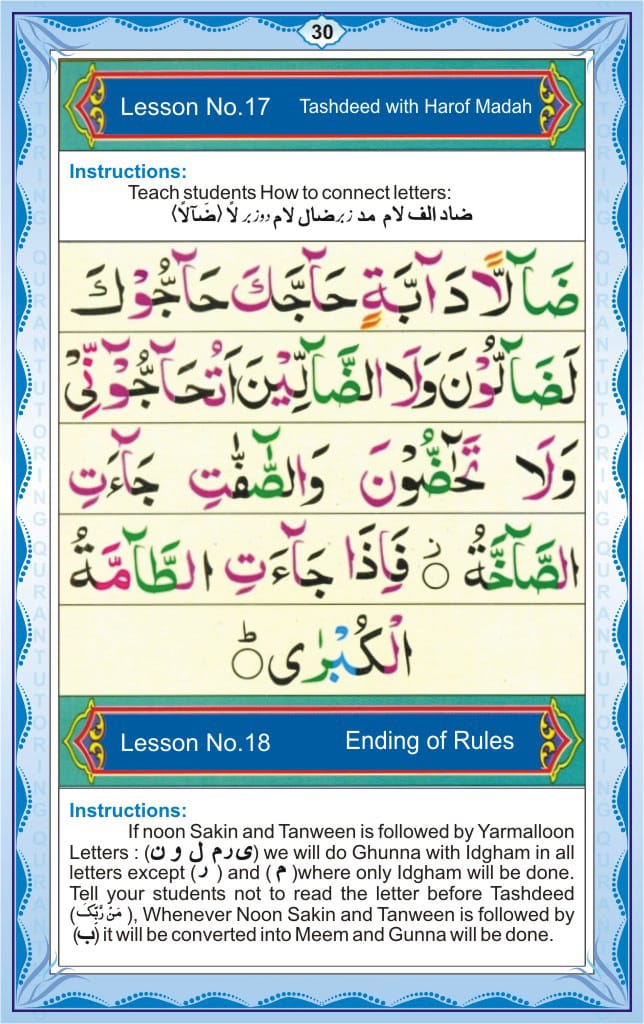 30
Lesson No.17 Tashdeed with Harof Madah
Instructions:
Teach students How to connect letters:
ضاد الف لام مد زبر ضال لام دوزبر لاً (ضَآلاً)
ضَآلًّا دَآبَّةٍ حَآجَّكَ حَآجُّوْكَ
لَضَآلُّوْنَ وَلَا الضَّآلِّيْنَ اَتُحَآجُّوْٓنِّيْ
وَلَا تَحٰٓضُّوْنَ وَالصّٰٓفّٰتِ جَآءَتِ
الصَّآخَّةُ ز فَاِذَا جَآءَتِ الطَّآمَّةُ
الْكُبْرٰى ط
Lesson No.18 Ending of Rules
Instructions:
If noon Sakin and Tanween is followed by Yarmalloon
Letters : (ی ر م ل و ن) we will do Ghunna with Idgham in all
letters except ( ر ) and ( م )where only Idgham will be done.
Tell your students not to read the letter before Tashdeed
(مَنْ رَّبِّكَ ), Whenever Noon Sakin and Tanween is followed by
(ب) it will be converted into Meem and Gunna will be done.
QURAN TUTORING QURAN TUTORING QURAN TUTORING
QURAN TUTORING QURAN TUTORING QURAN TUTORING